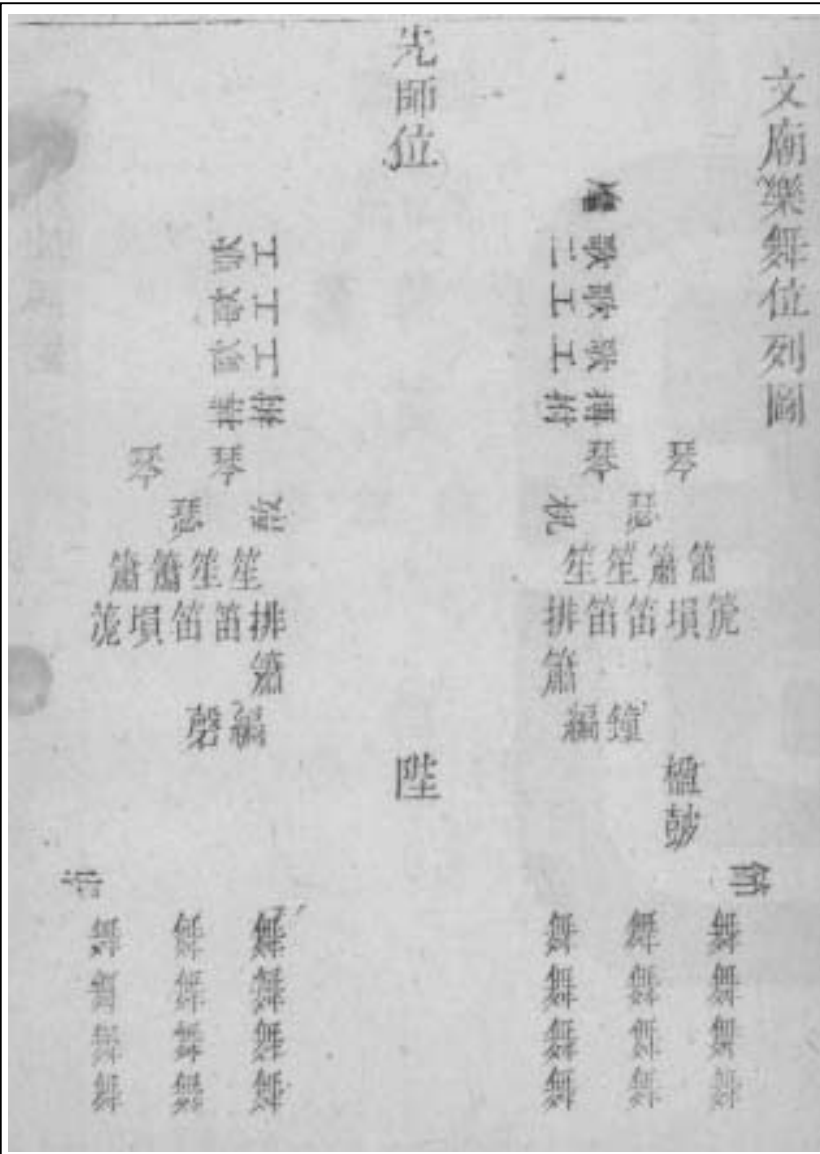 文廟樂舞位列圖
先師位
陛
麾
歌歌歌搏
工工工拊
琴
琴
瑟
柷
笙笙簫簫
排笛笛塤箎
簫
編鐘
楹鼓
節
舞舞舞
舞舞舞
舞舞舞
舞舞舞
工工工拊
歌歌歌搏
琴琴
瑟敔
簫簫笙笙
箎塤笛笛排
簫
磬編
節
舞舞舞
舞舞舞
舞舞舞
舞舞舞